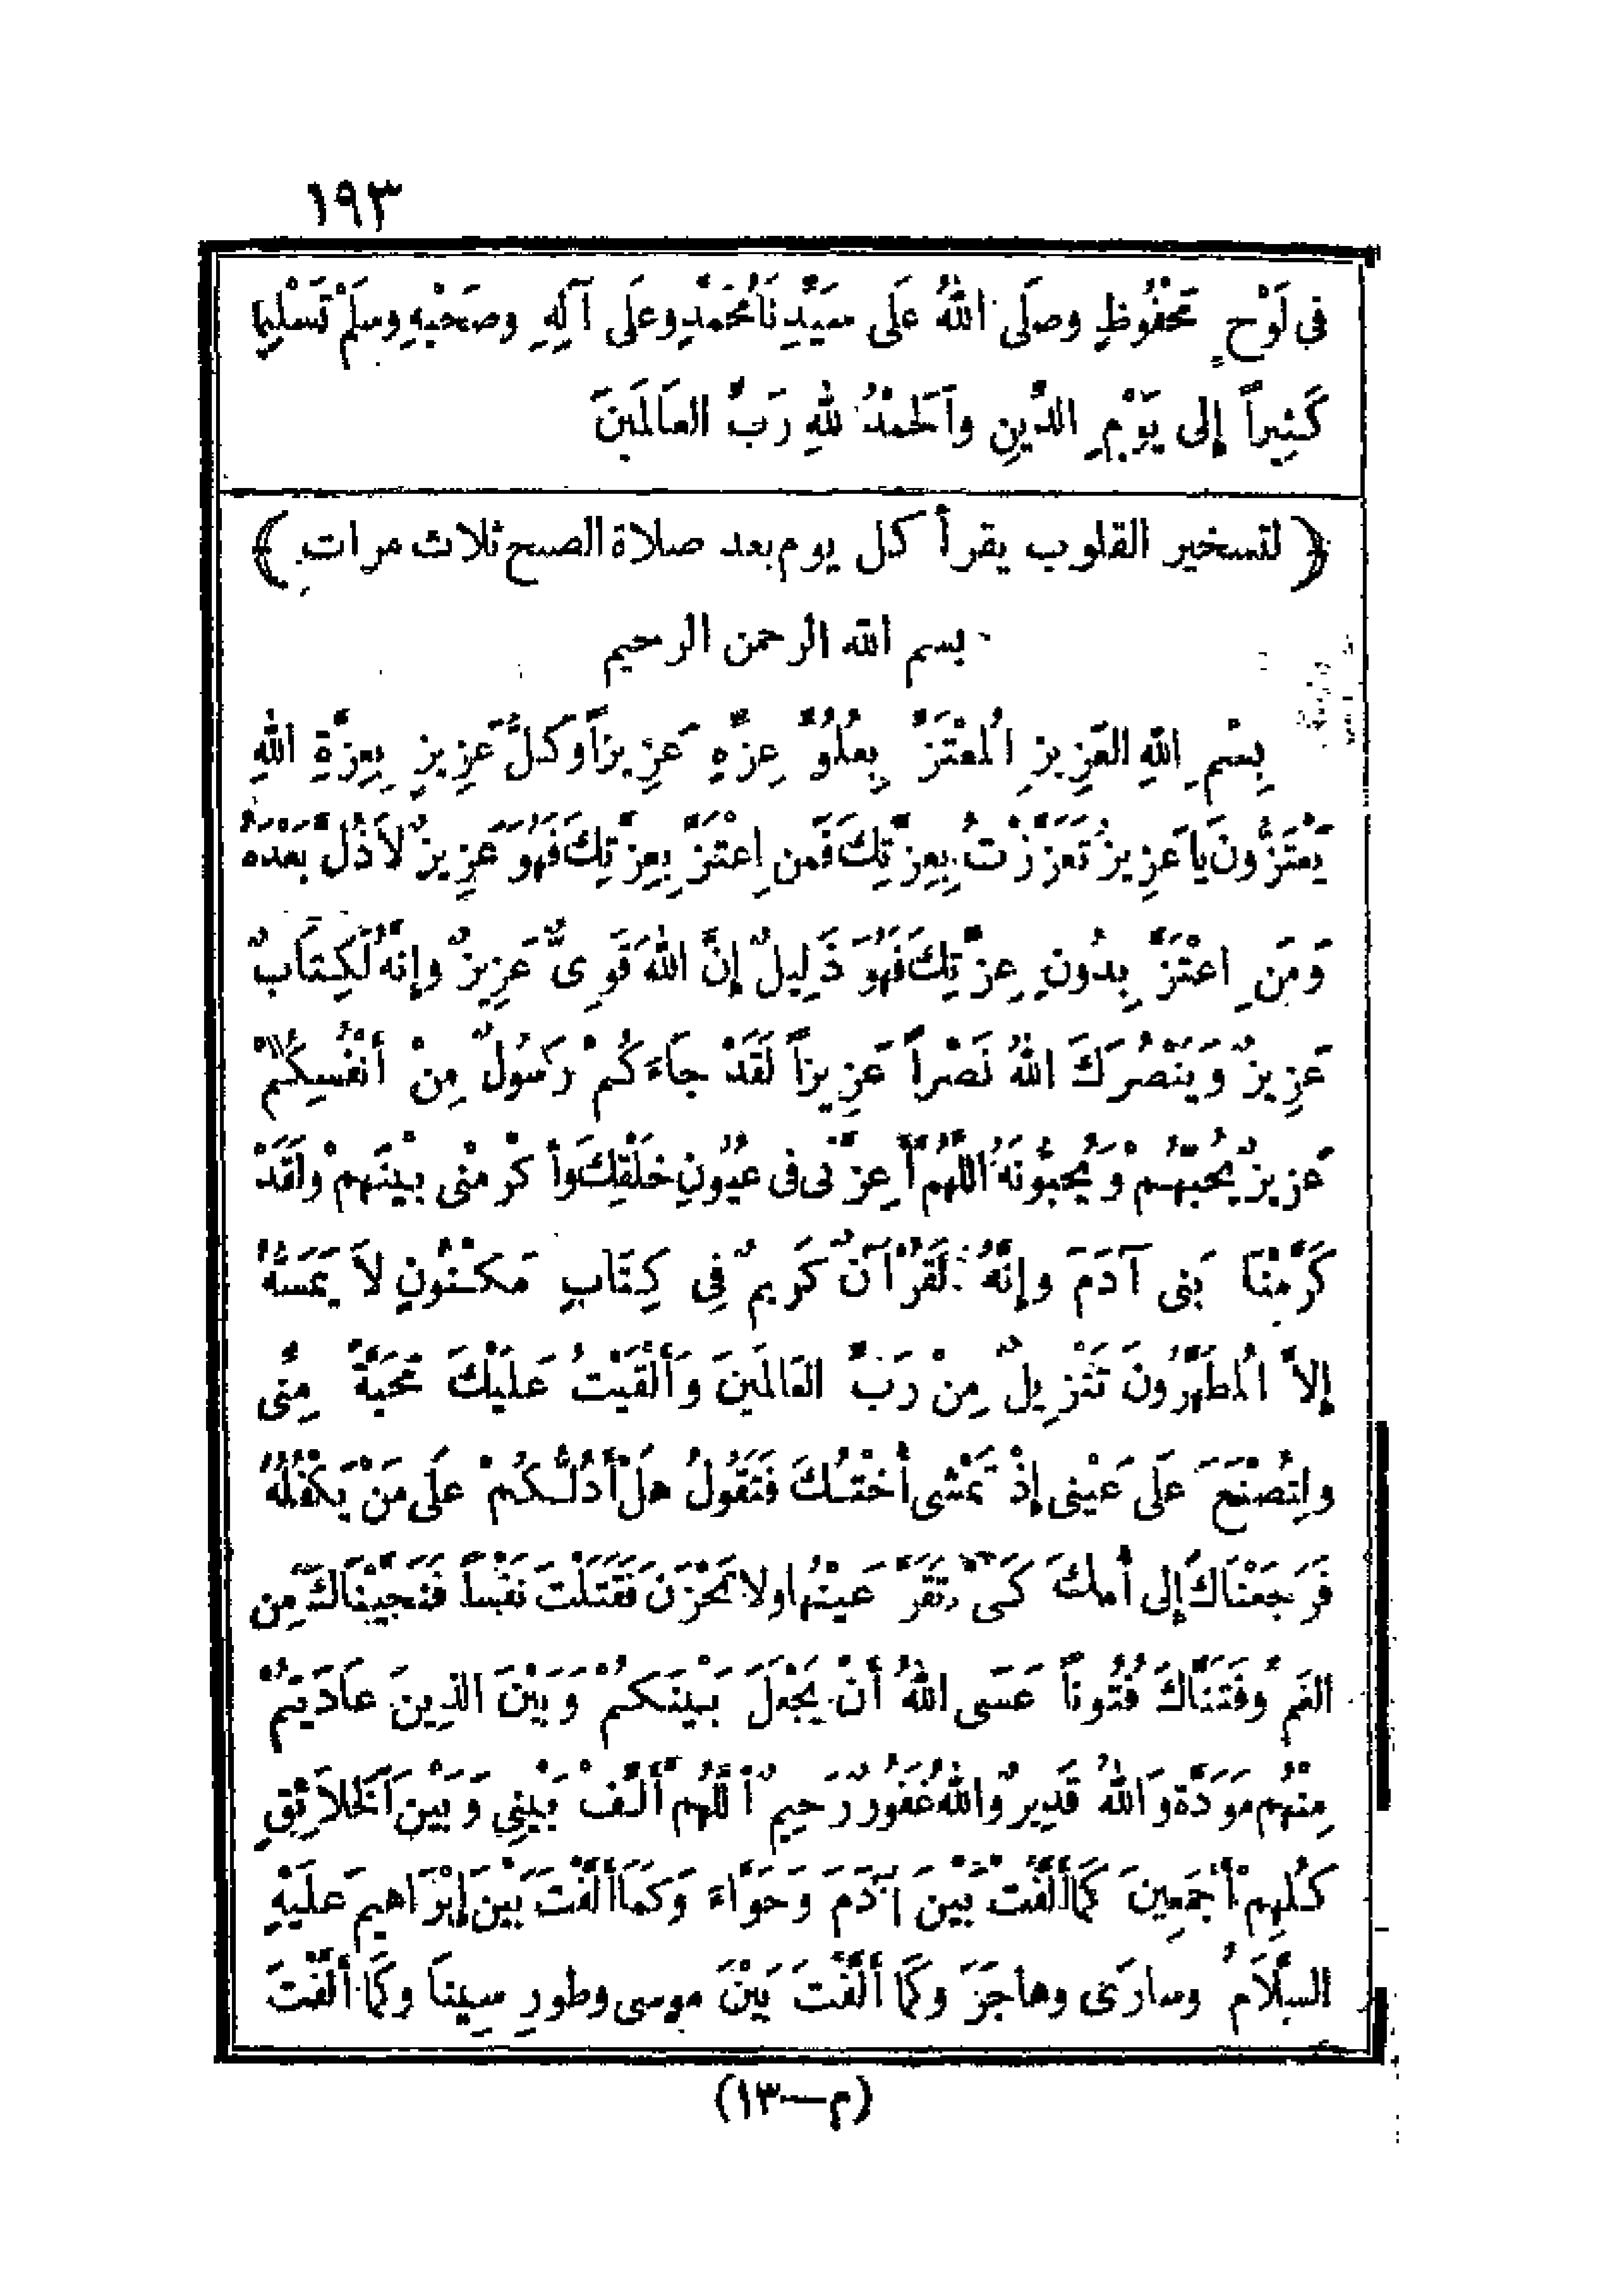 ١٩٣
فى لَوْحٍ مَحْفُوظٍ وصَلَى اللهُ عَلَى سَيِّدِنَا مُحَمَّدٍ وعَلَى آلِهِ وصَحْبِهِ وسلَمْ تَسْلِيما
كَثِيراً إلى يَوْمِ الدِّينِ وَالْحَمْدُ لِلهِ رَبِّ العَالَمَينَ
﴿ لتسخير القلوب يقرأ كل يوم بعد صلاة الصبح ثلاث مرات ﴾
بسم الله الرحمن الرحيم
بِسْمِ اللهِ العَزِيزِ الْمُعْتَزِّ بِعُلُوِّ عِزِّهِ عَزِيزاً وَكَلُّ عَزِيزٍ بِعِزَّةِ اللهِ
يَعْتَزُّونَ يا عَزِيزُ تَعَزَّزْتُ بِعِزَّتِكَ فَمَنِ اعْتَزَّ بِعِزَّتِكَ فَهُوَ عَزِيزٌ لاَ ذُلَّ بَعْدَهُ
وَمَنِ اعْتَزَّ بِدُونِ عِزَّتِكَ فَهُوَ ذَلِيلٌ إنَّ اللهَ قَوِىٌّ عَزِيزٌ وإنَّهُ لَكِتَابٌ
عَزِيزٌ وَيَنْصُرَكَ اللهُ نَصْراً عَزِيزاً لَقَدْ جَاءَكُمْ رَسُولٌ مِنْ أَنْفُسِكُمْ
عَزِيزٌ يُحُبّهُمْ وَيُحِبُّونَهُ اللَّهُمَّ أعِزَّنى فى عُيُونِ خَلْقِكَ وأكْرِمْنى بَيْنَهمْ ولَقَدْ
كَرَّمْنَا بَنى آدَمَ وإنَّهُ لَقُرْآنٌ كَرِيمٌ فِى كِتَابٍ مَكْنُونٍ لاَ يَمَسَّهُ
إلاَّ الْمُطَهَّرُونَ تَنْزِيلٌ مِنْ رَبِّ العَالَمَينَ وَأَلْقَيْتُ عَلَيْكَ مَحَبَّةً مِنِّى
ولِتُصْنَعَ عَلَى عَيْنى إذْ تَمْشى أُخْتُكَ فَتَقُولُ هَلْ أَدُلُّكُمْ عَلَى مَنْ يَكْفُلُهُ
فَرَجَعْنَاكَ إلى أُمكَ كَىْ تَقَرَّ عَيْنُها ولا تَحْزَنَ فَقَتَلْتَ نَفْساً فَنَجَيْنَاكَ مِن
الغَمِّ وَفَتَنَّاكَ فُتُوناً عَسَى اللهُ أَنْ يَجْعَلَ بَيْنَكُمْ وَبَيْنَ الذِينَ عَادَيْتُمْ
مِنْهُمْ مَوَدَّةً وَاللهُ قَدِيرٌ وَاللهُ غَفُورٌ رَحِيمٌ أَللَّهُمَّ أَلِّفْ بَيْنِي وَبَيْنَ الْخَلاَئِقِ
كُلِهِمْ أَجْمَعِينَ كَمَا أَلَّفْتَ بَيْنَ آدَمَ وَحَوَّاءَ وَكَمَا أَلَّفْتَ بَيْنَ إبْرَاهِيمَ عَلَيْهِ
السَّلَامُ وسارَى وهاجَرَ وكَمَا أَلَّفْتَ بَيْنَ موسى وطورِ سِينَا وكَمَا أَلَّفْتَ
(م—١٣)